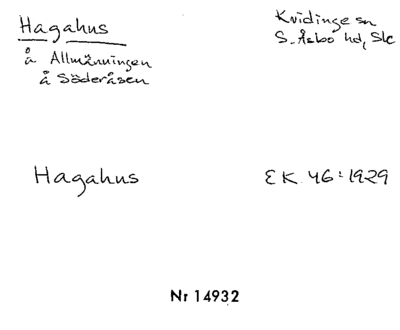 Hagahus
å Allmänningen
å Söderåsen
Kvidinge sn
S. Åsbo hd, Sk
Hagahus
EK. 46:1929
Nr 14932